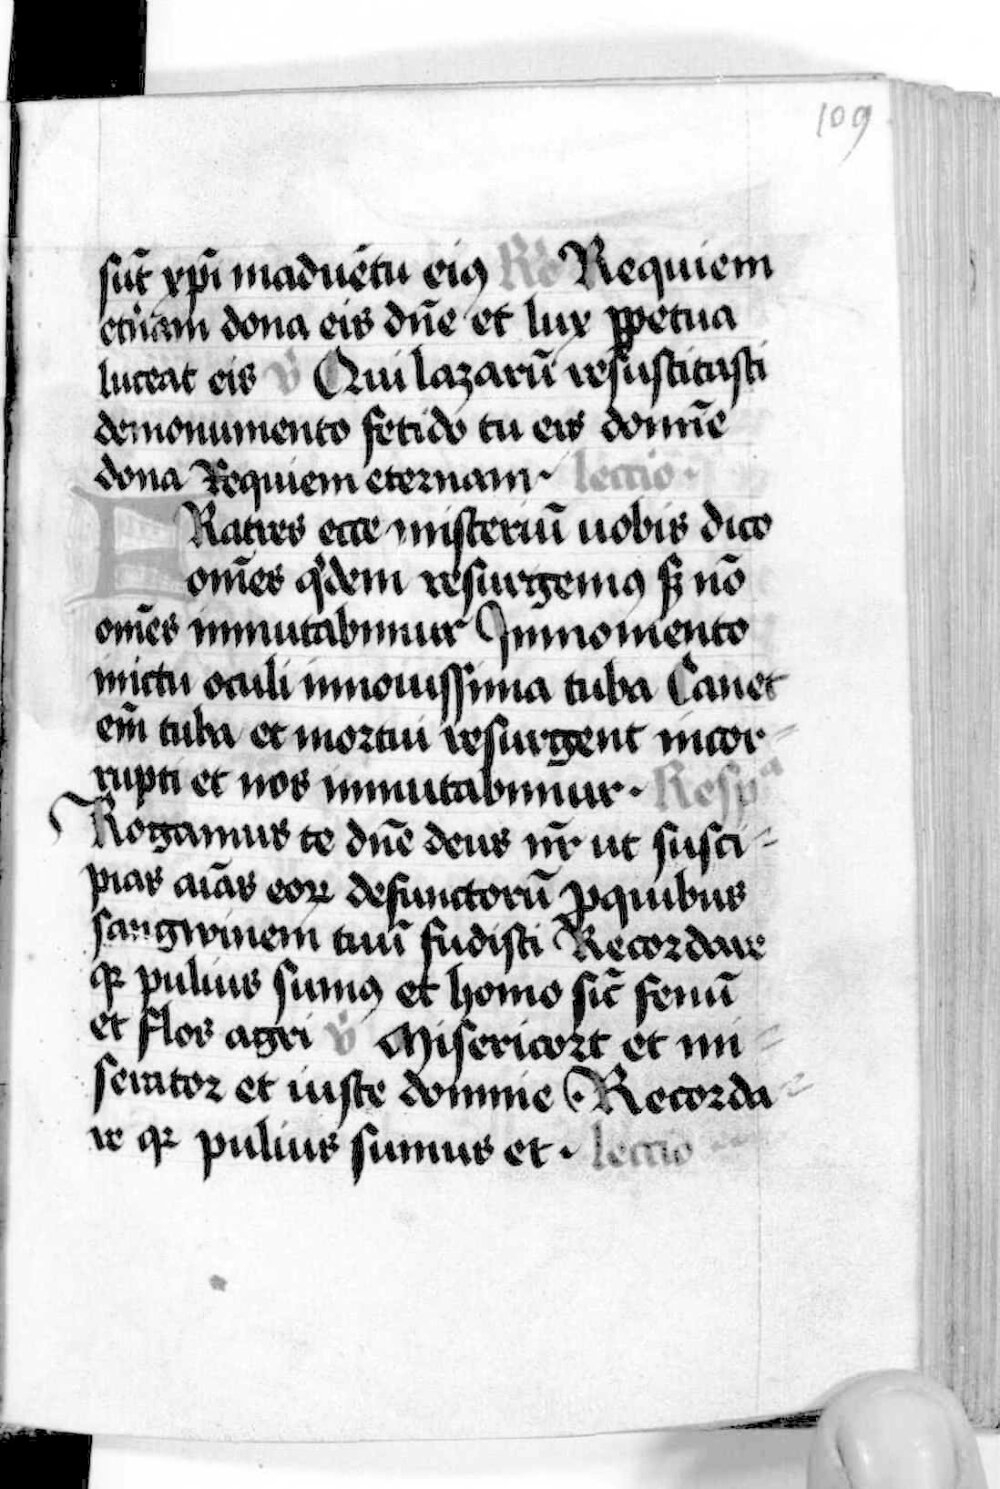 109
sūt xpī inaduētu eiꝰ R̄o Requiem
etn̄am dona eis dn̄e et lux ꝑpetua
luceat eis v̄ Qui lazarū resuscitasti
demonumento fetido tu eis domīe
dona Requiem eternam · lectio ·
FRatres ecce misteriū uobis dico
om̄es q̇dem resurgemꝰ sꝫ nō
om̄es inmutabimur Inmomento
inictu oculi innouissima tuba Canet
em̄ tuba et mortui resurgent incor-
rupti et nos inmutabimur · Respᵃ
Rogamus te dn̄e deus nr̄ ut susci-
pias aīas eoꝝ defunctorū ꝓquibus
sangwinem tuū fudisti Recordare
qꝛ puluis sumꝰ et homo sic̄ fenū
et flos agri v̄ Misericors et mi-
serator et iuste domine · Recorda-
re qꝛ puluis sumus et · lectio